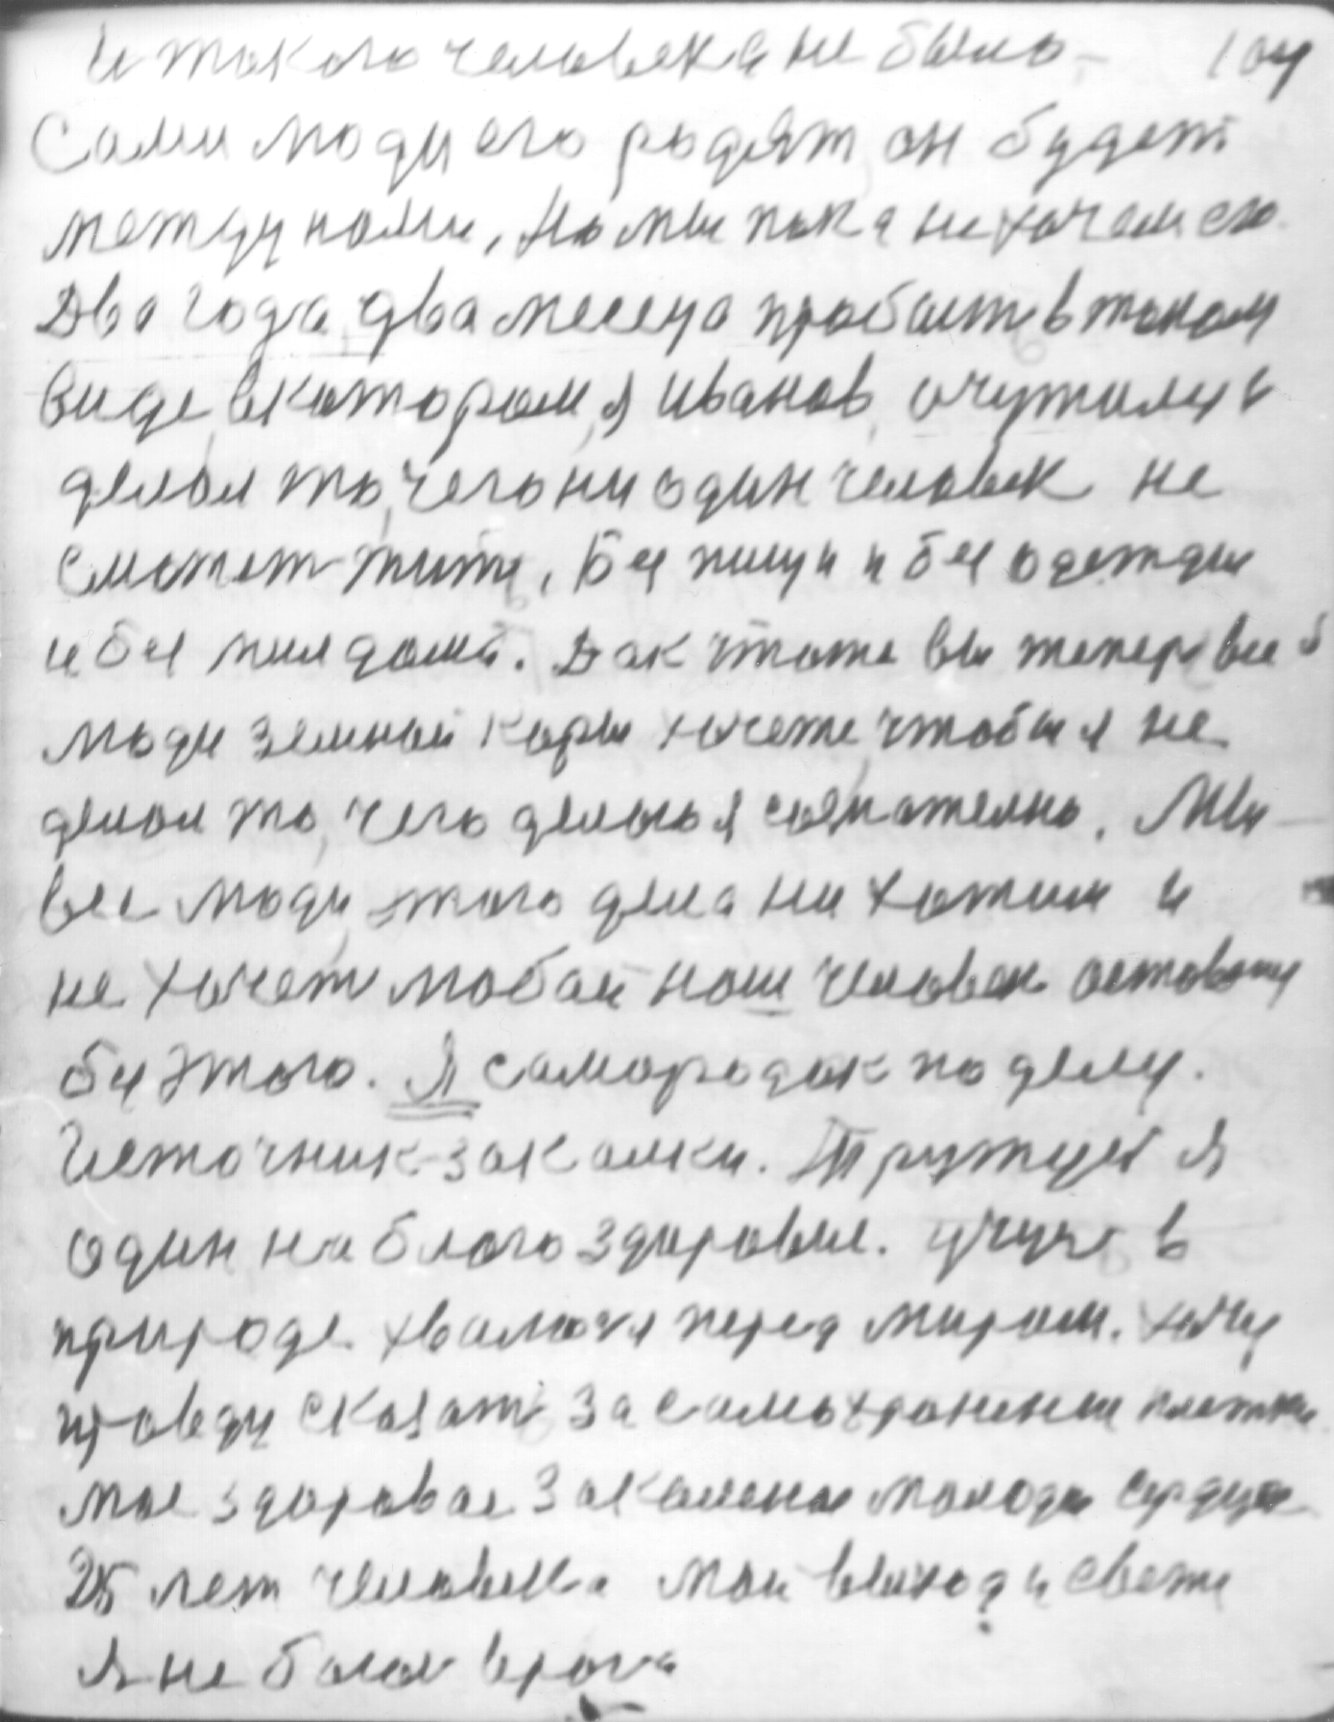 и такого человека не было. 104
Сами люди его родят, он будет
между нами, но мы пока не хочем его.
Два года, два месеца пробыть в таком
виде, в котором, я Иванов, очутился
делал то, чего ни один человек не
сможет жить, Без пищи и без одежды
и без жил дома. Дак что же вы теперь все
люди земной коры хочете, чтобы я не
делал то, чего делаю я сознательно. Мы
все люди, этого дела ни хотим и
не хочет любой наш человек оставаться
без этого. Я самородок по делу.
Источник закалки. Тружусь я
один на благо здоровья. учусь в
природе хвалюся перед миром. хочу
правду сказать за самохранения клетки
мое здоровое закаленое молодое сердце
25 лет человека мой выход и свете
Я не боюся врага